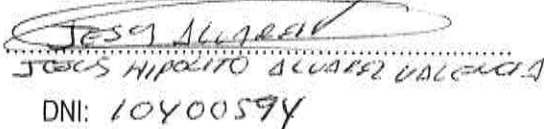 JESUS ALVAREZ
JESUS HIPOLITO ALVAREZ VALENCIA
DNI: 10400594